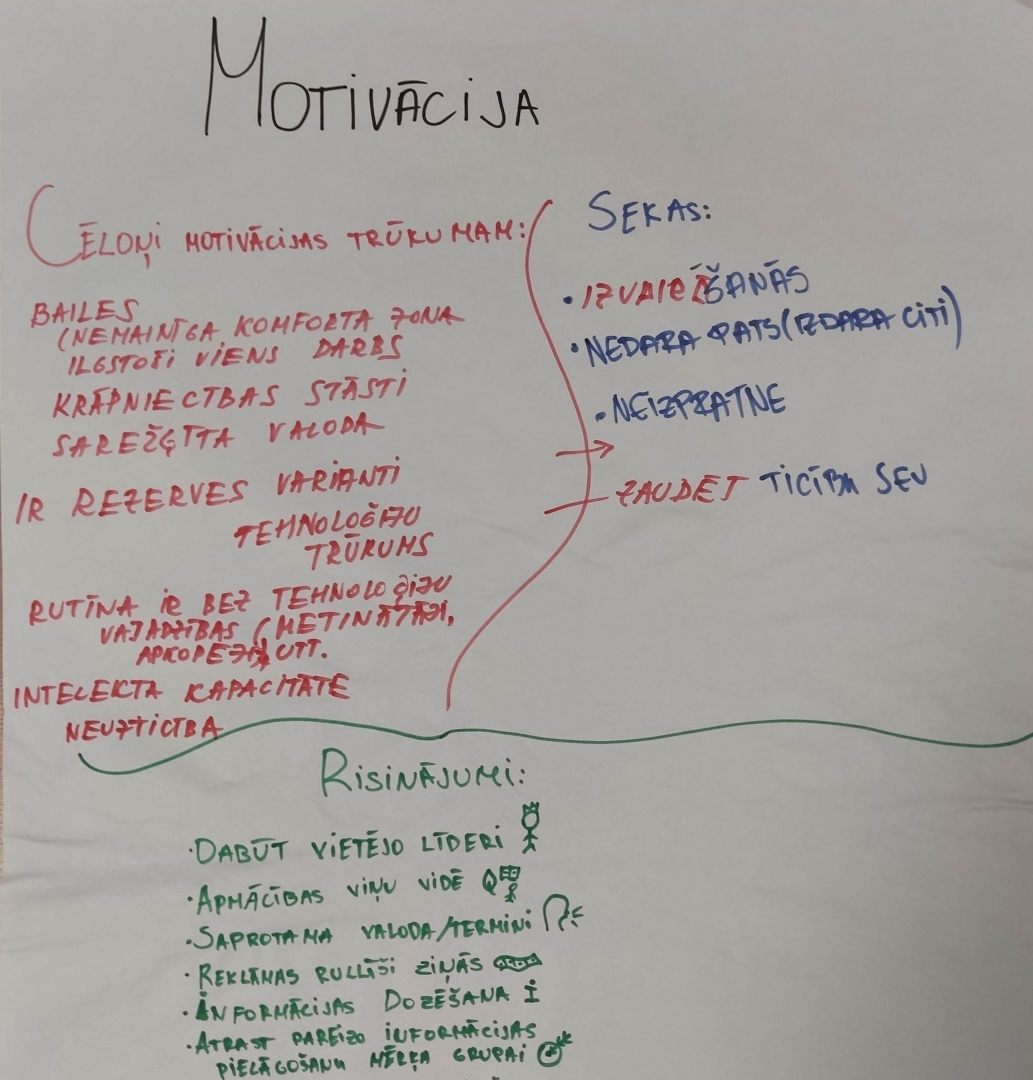 MOTIVĀCIJA
CĒLOŅI MOTIVĀCIJAS TRŪKUMAM:
BAILES
(NEMAINĪGA KOMFORTA ZONA
ILGSTOŠI VIENS DARBS
KRĀPNIECĪBAS STĀSTI
SAREŽĢĪTA VALODA
IR REZERVES VARIANTI
TEHNOLOĢIJU
TRŪKUMS
RUTĪNA IR BEZ TEHNOLOĢIJU
VAJADZĪBAS (METINĀTĀJI,
APKOPĒJI, UTT.
INTELEKTA KAPACITĀTE
NEUZTICĪBA
SEKAS:
• IZVAIRĪŠANĀS
• NEDARA PATS (IZDARA CITI)
• NEIZPRATNE
ZAUDĒT TICĪBA SEV
RISINĀJUMI:
• DABŪT VIETĒJO LĪDERI
• APMĀCĪBAS VIŅU VIDĒ
• SAPROTAMA VALODA/TERMINI
• REKLĀMAS RULLĪŠI ZIŅĀS
• INFORMĀCIJAS DOZĒŠANA
• ATRAST PAREIZO INFORMĀCIJAS
PIELĀGOŠANU MĒRĶA GRUPAI